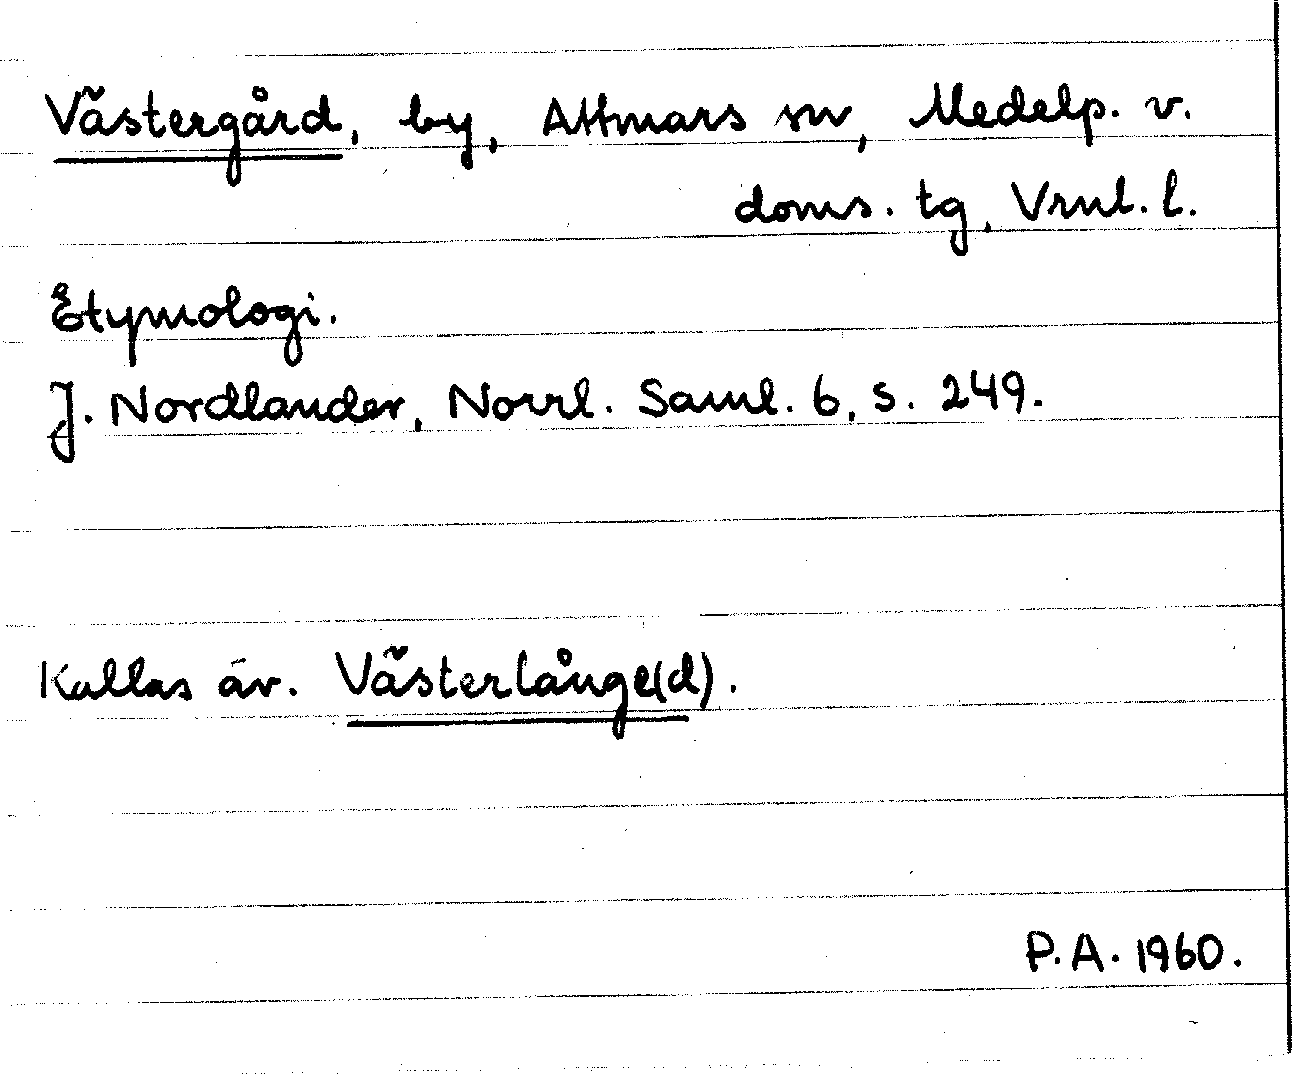 Västergård, by, Attmars sn, Medelp. v.
doms. tg, Vrnl. l.
Etymologi.
J. Nordlander, Norrl. Saml. 6, s. 249.
Kallas äv. Västerlånge(d).
P.A. 1960.